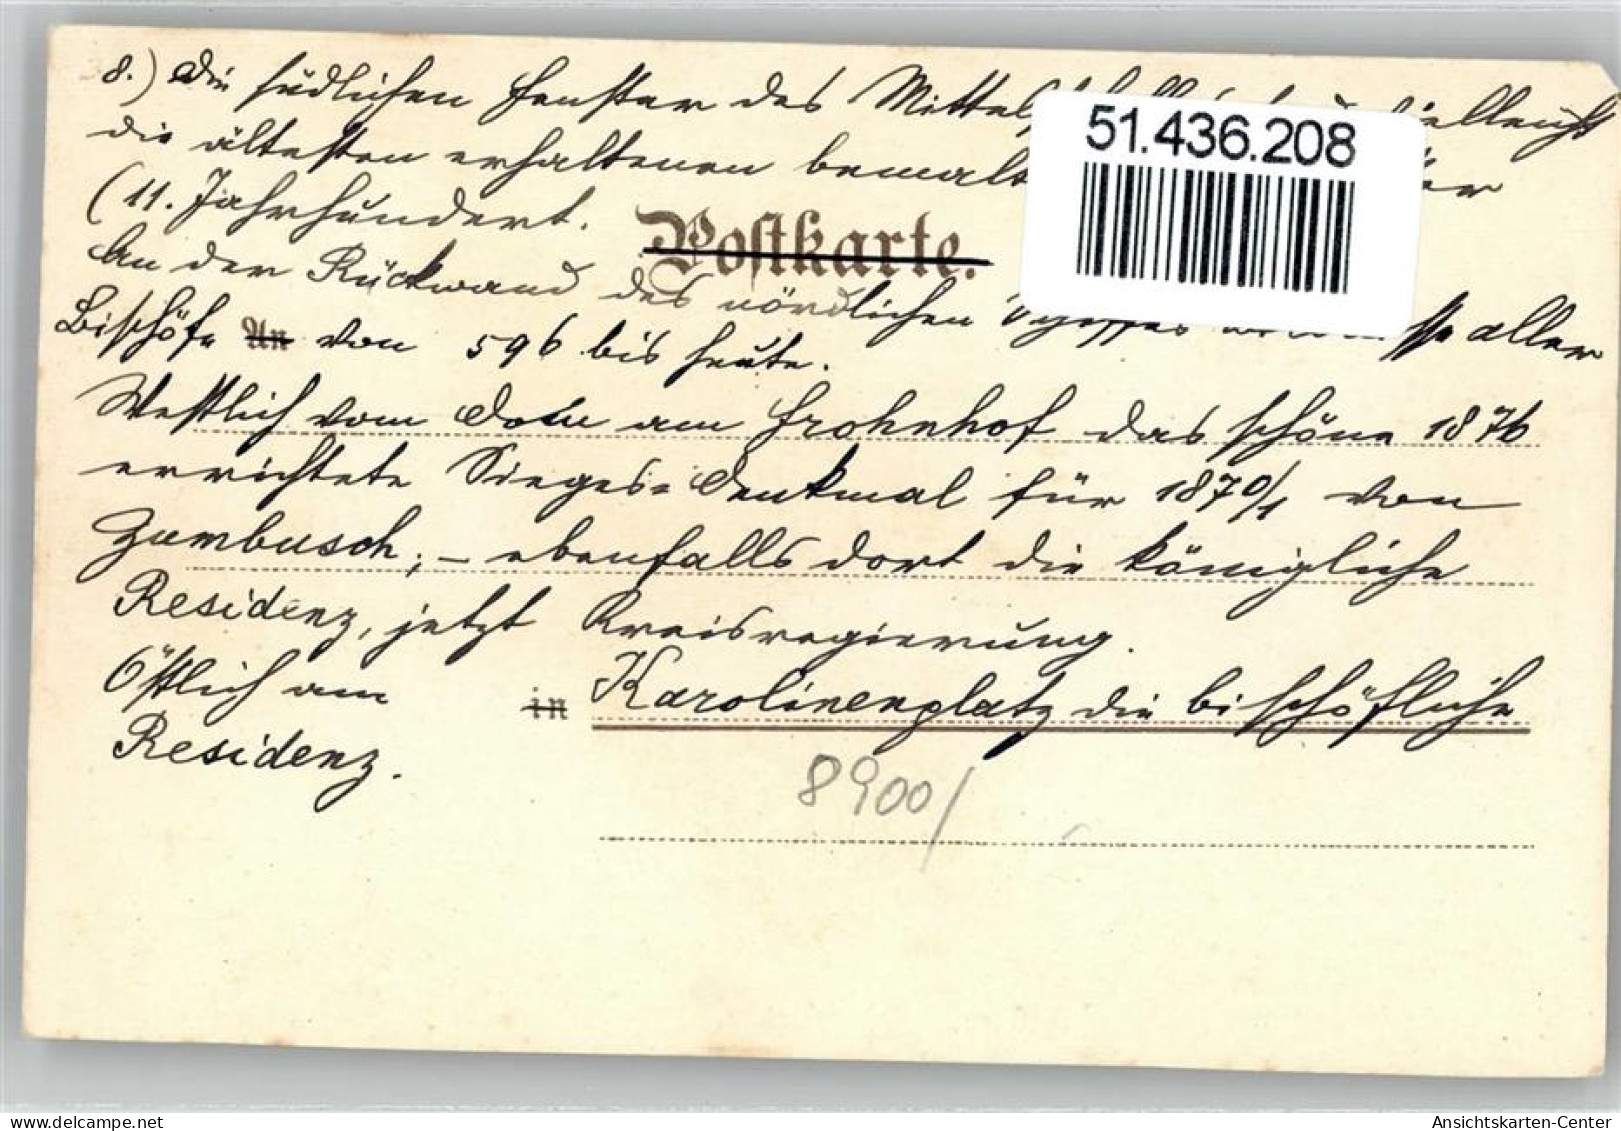 8.) Die südlichen Fenster des Mittel vielleicht
die ältesten erhaltenen bemalt
(11. Jahrhundert.
Postkarte.
An der Rückwand des nördlichen aller
Bischöfe An von 596 bis heute.
Westlich vom Dom am Frohnhof das schöne 1876
errichtete Sieges=Denkmal für 1870/1 von
Zumbusch; – ebenfalls dort die königliche
Residenz, jetzt Kreisregierung.
Östlich am in Karolinenplatz die bischöfliche
Residenz.
8900/
51.436.208
Ansichtskarten-Center